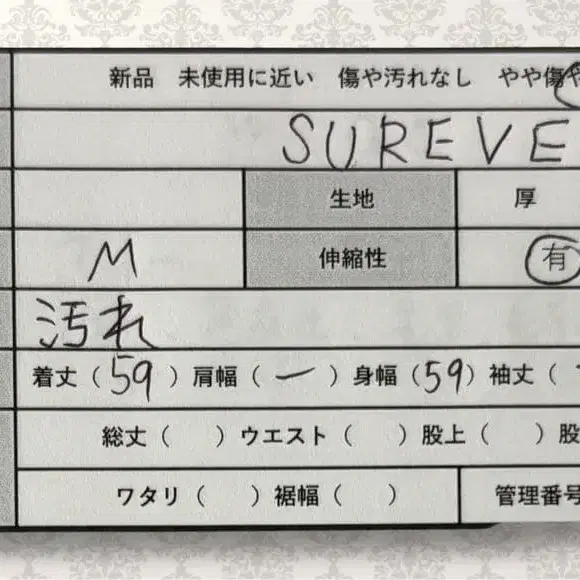 新品 未使用に近い 傷や汚れなし やや傷や
SUREVE
生地 厚
M 伸縮性 有
汚れ
着丈(59)肩幅(ー)身幅(59)袖丈(
総丈( )ウエスト( )股上( )股
ワタリ( )裾幅( ) 管理番号